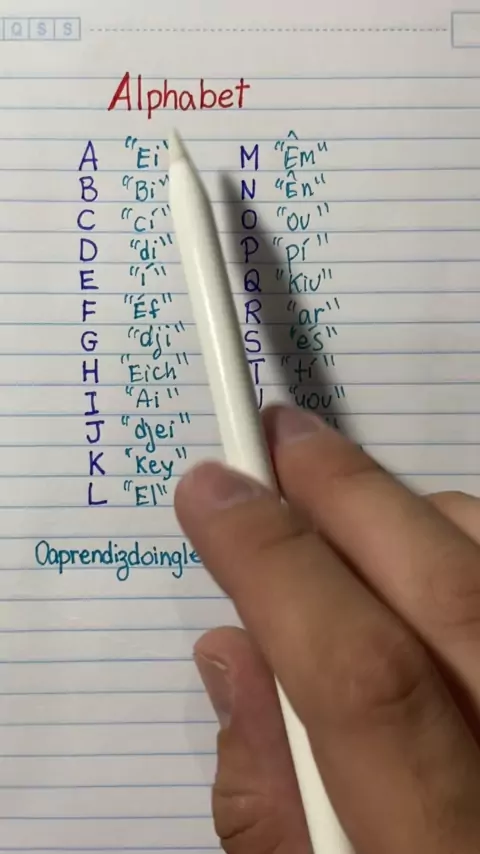 Q S S
Alphabet
A "Ei"
B "Bi"
C "Cí"
D "di"
E "í"
F "Éf"
G "dji"
H "Eich"
I "Ai"
J "djei"
K "Key"
L "El"
M "Êm"
N "Ên"
O "ou"
P "pí"
Q "Kiu"
R "ar"
S "és"
T "tí"
"uou"